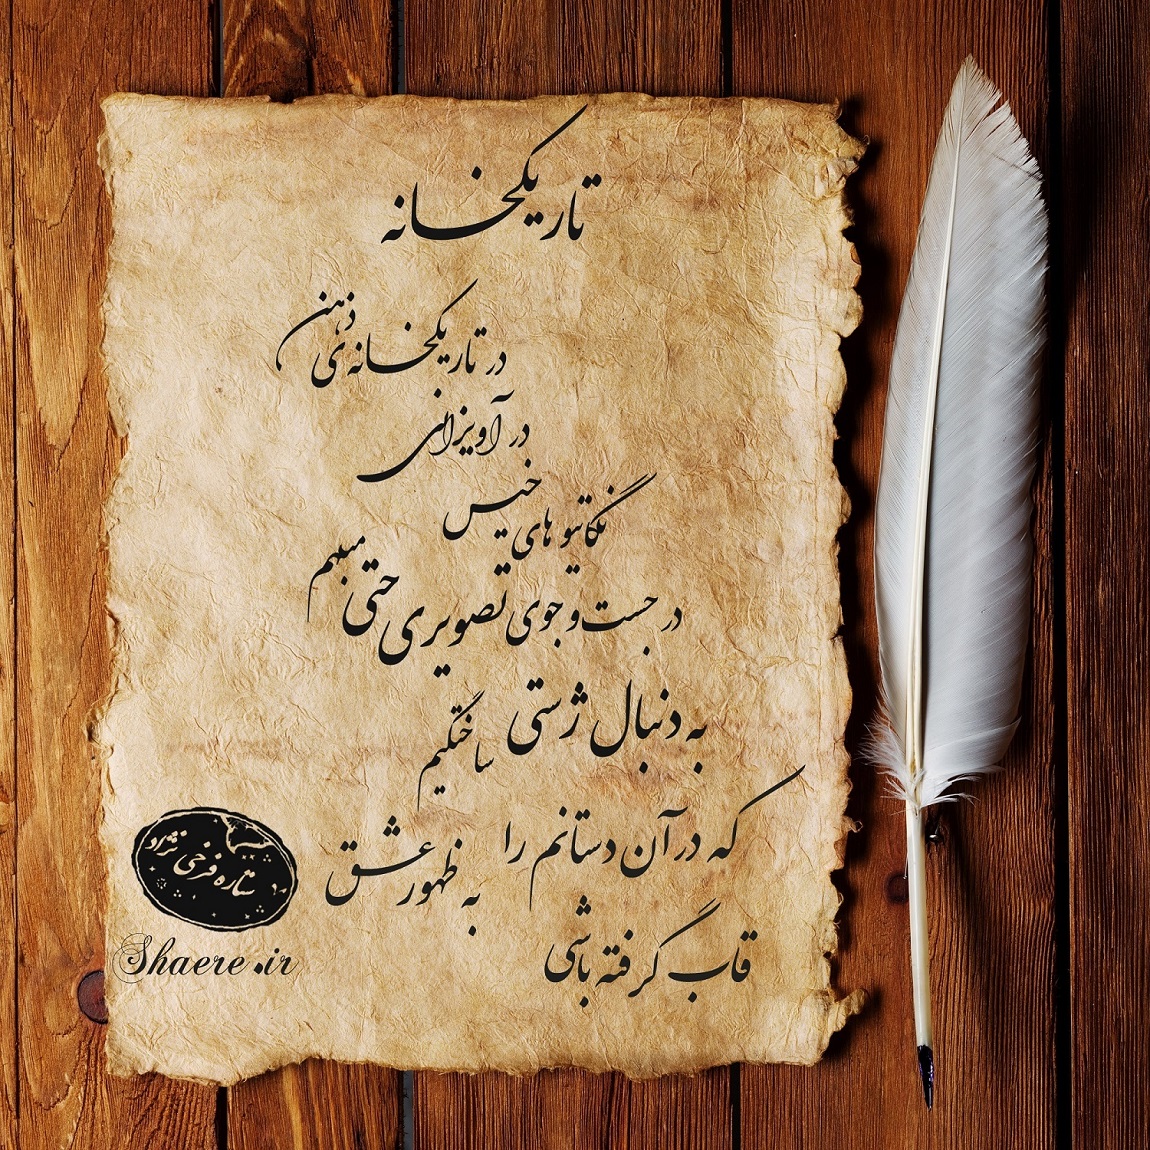 تاریکخانه
در تاریکخانه‌ی ذهن
در آویزانی
نگاتیو های خیس
در جست و جوی تصویری حتی مبهم
به دنبال ژستی ساختگیم
که در آن دستانم را به ظهور عشق
قاب گرفته باشی
ستاره فرخی نژاد
Shaere.ir